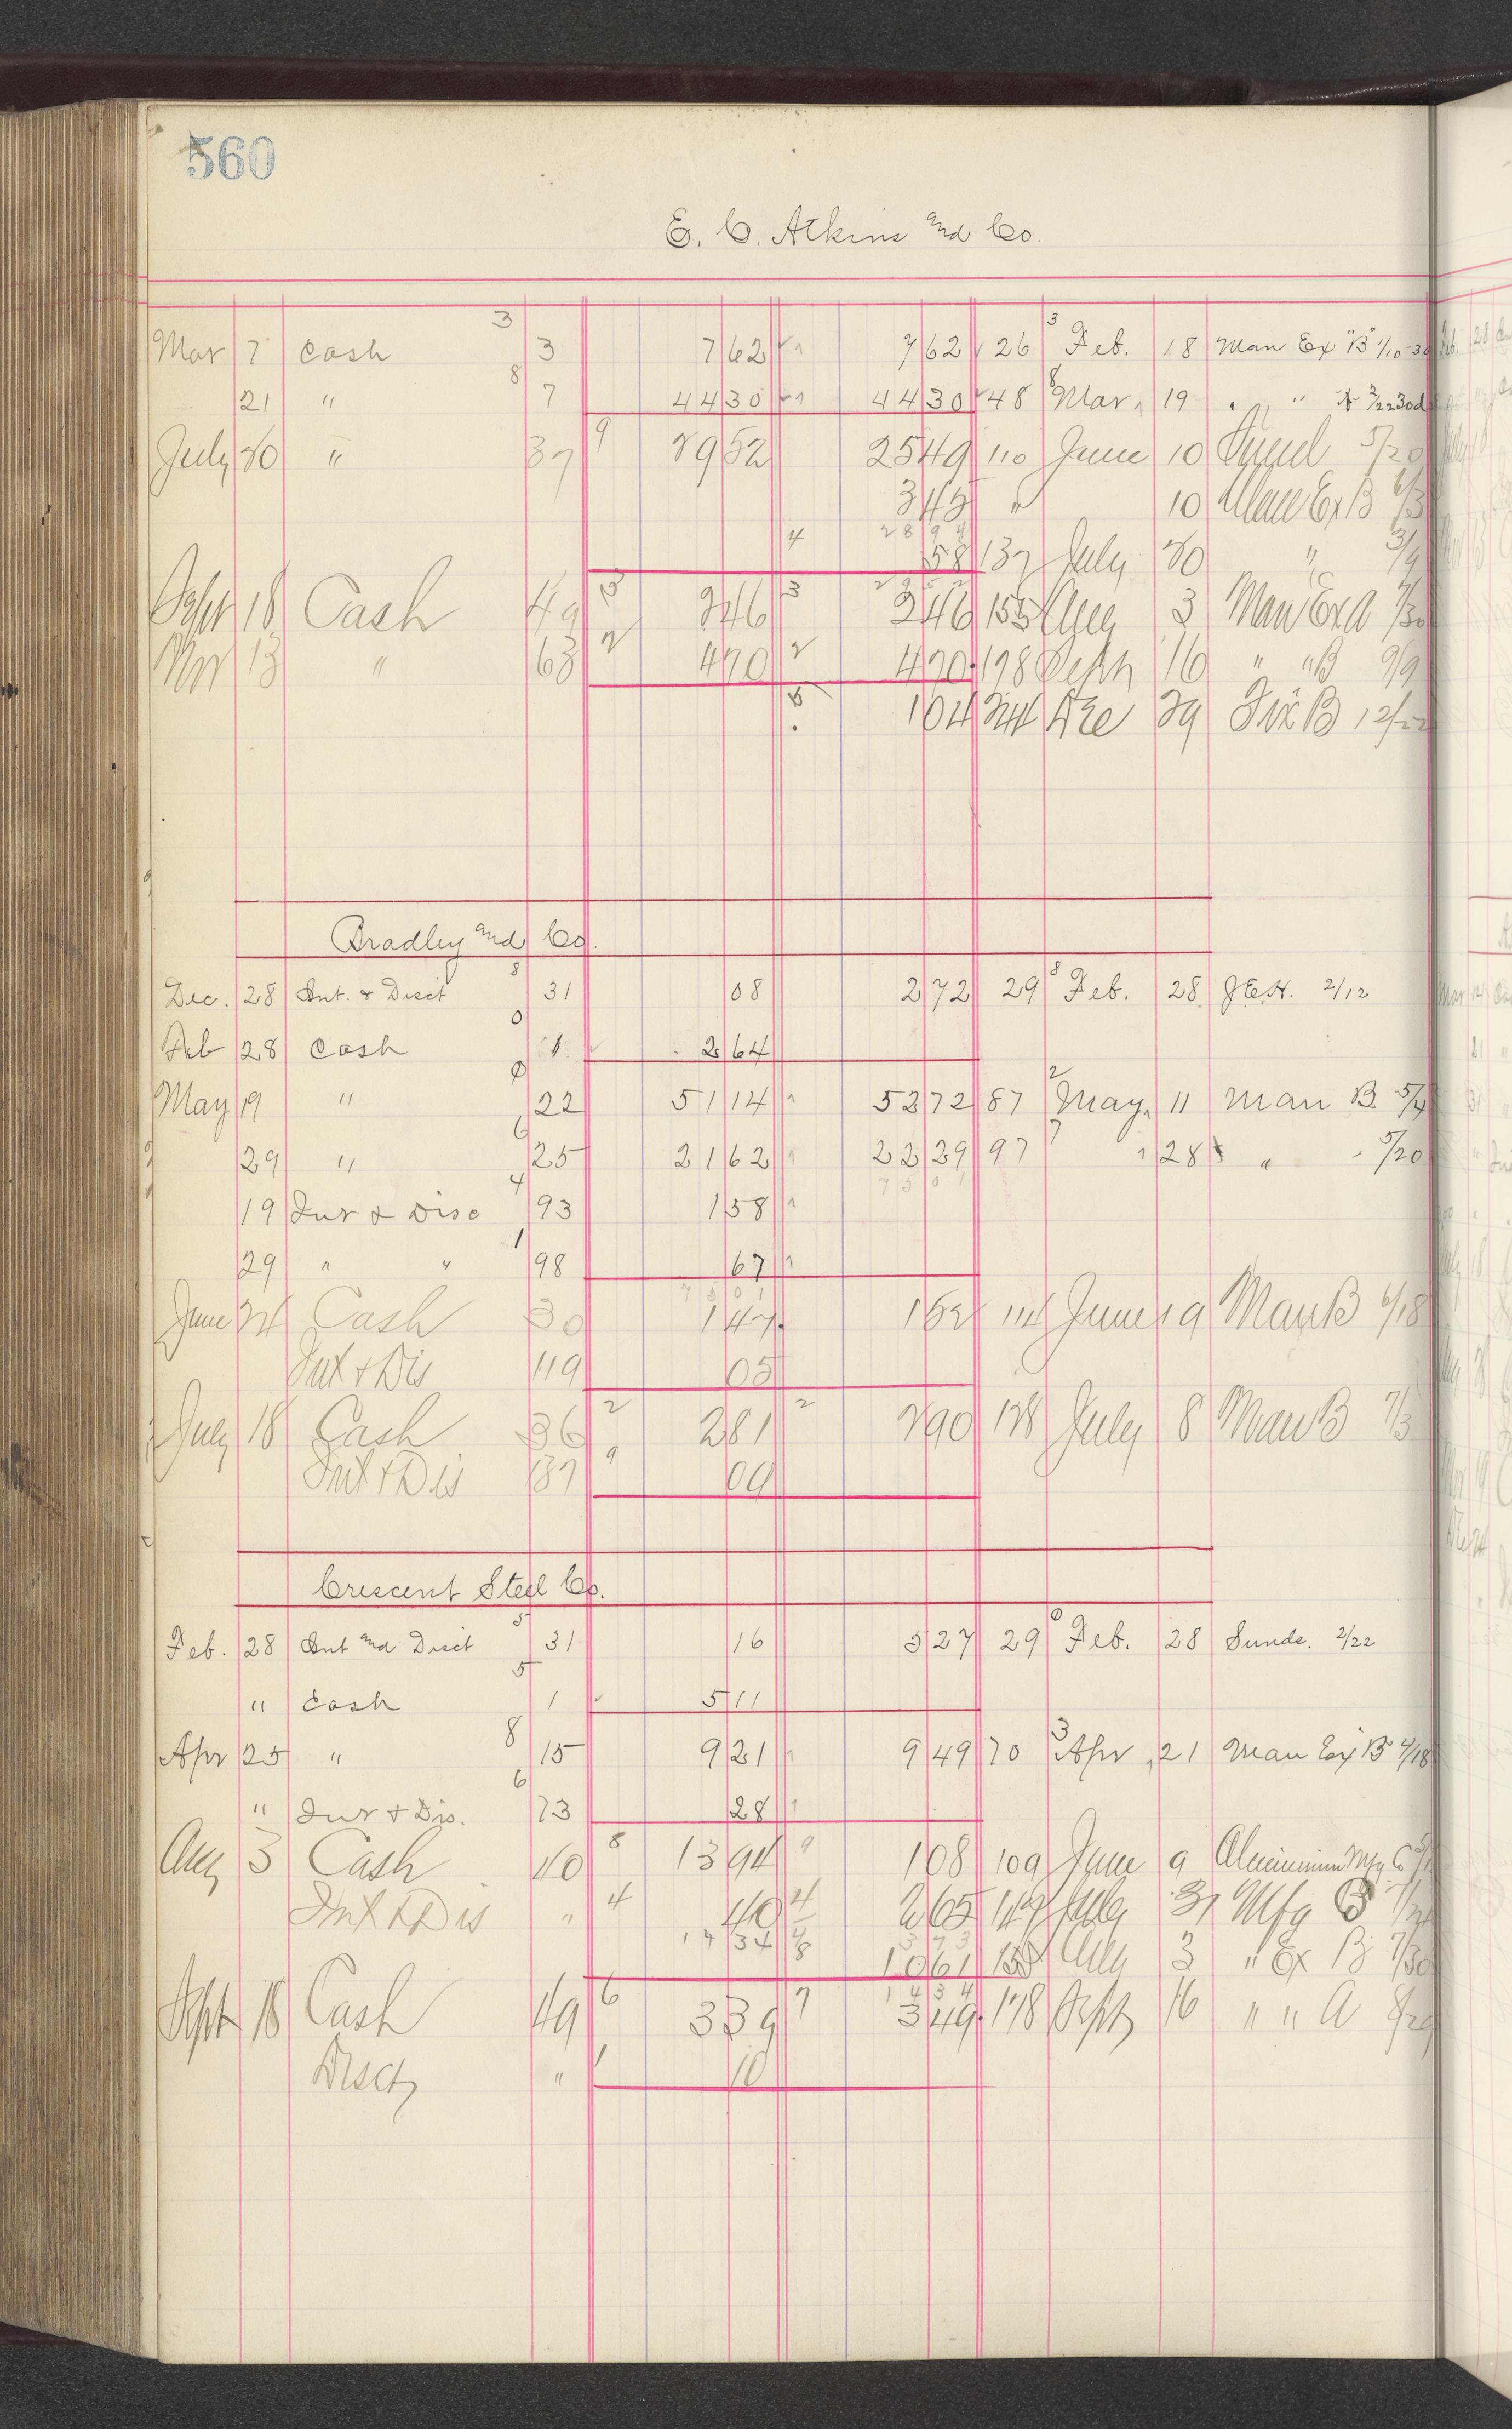 560
E. C. Atkins and Co.
Mar 7 Cash 3 3 7 62 7 62 26 3 Feb. 18 Man Ex "B" 1/10-30
21 " 8 7 44 30 44 30 48 8 Mar 19 " " 30d
July 30 " 37 9 29 52 25 49 110 June 10 5/20
3 45 " 10 Man Ex B 6/3
4 28 94
58 137 July 30 "
Sept 18 Cash 49 3 2 46 3 2 46 155 Aug 3 Man Ex A 7/30
Nov 13 " 63 2 4 70 2 4 70 178 Sept 16 " " B 9/9
5 1 04 244 Dec 29 Fix B
Bradley and Co.
Dec. 28 Int. & Disct 8 31 08 2 72 29 8 Feb. 28 J E H. 2/12
Feb 28 Cash 0 1 2 64
May 19 " 22 51 14 52 72 87 2 May 11 Man B 5/4
29 " 6 25 21 62 22 29 97 7 " 28 " 5/20
19 Int & Disc 4 93 1 58
29 " " 1 98 67
June 24 Cash 30 1 47 1 52 114 June 19 Man B 6/18
Int & Dis 119 05
July 18 Cash 36 2 2 81 2 2 90 128 July 8 Man B 7/3
Int & Dis 137 9 09
Crescent Steel Co.
Feb. 28 Int and Disct 5 31 16 5 27 29 0 Feb. 28 Sunds. 2/22
" Cash 5 1 5 11
Apr 25 " 8 15 9 21 9 49 70 3 Apr 21 Man Ex B 4/18
" Int & Dis. 6 73 28
Aug 3 Cash 40 8 13 94 9 1 08 109 June 9 Aluminium Mfg C
Int & Dis " 4 40 4 2 65 149 July 31 Mfg B
14 34 8 10 61 155 Aug 3 " Ex B 7/30
14 34
Sept 18 Cash 49 6 3 39 7 3 49 178 Sept 16 " " A 8/29
Disct " 1 10